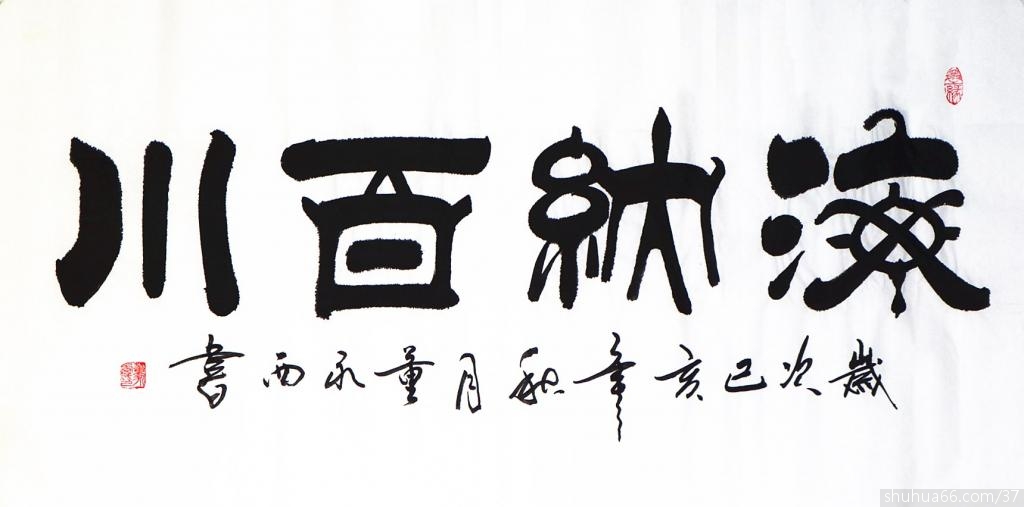 海納百川
歲次己亥年秋月董永西書
shuhua66.com/37